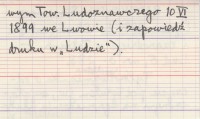 wym Tow. Ludoznawczego 10 VI
1899 we Lwowie (i zapowiedź
druku w „Ludzie”).